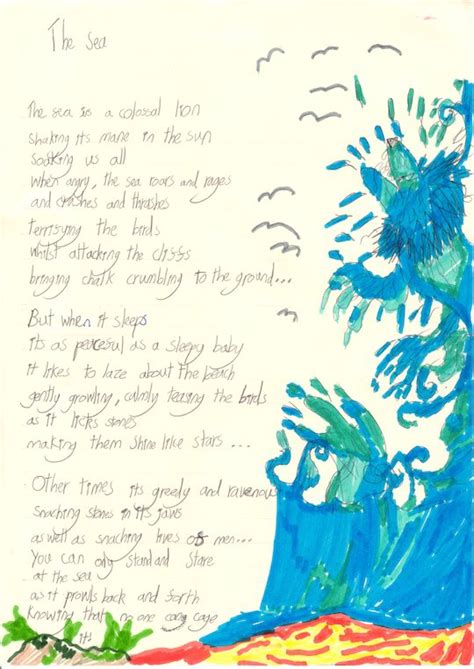 The Sea
The sea is a colossal lion
shaking its mane in the sun
soaking us all
when angry, the sea roars and rages
and crashes and thrashes
terrifying the birds
whilst attacking the cliffs
bringing chalk crumbling to the ground...
But when it sleeps
its as peaceful as a sleepy baby
it likes to laze about the beach
gently growling, calmly teasing the birds
as it licks stones
making them shine like stars...
Other times its greedy and ravenous
Snaching stones in its jaws
as well as snaching lives of men...
You can only stand and stare
at the sea
as it prowls back and forth
knowing that no one can cage
it!